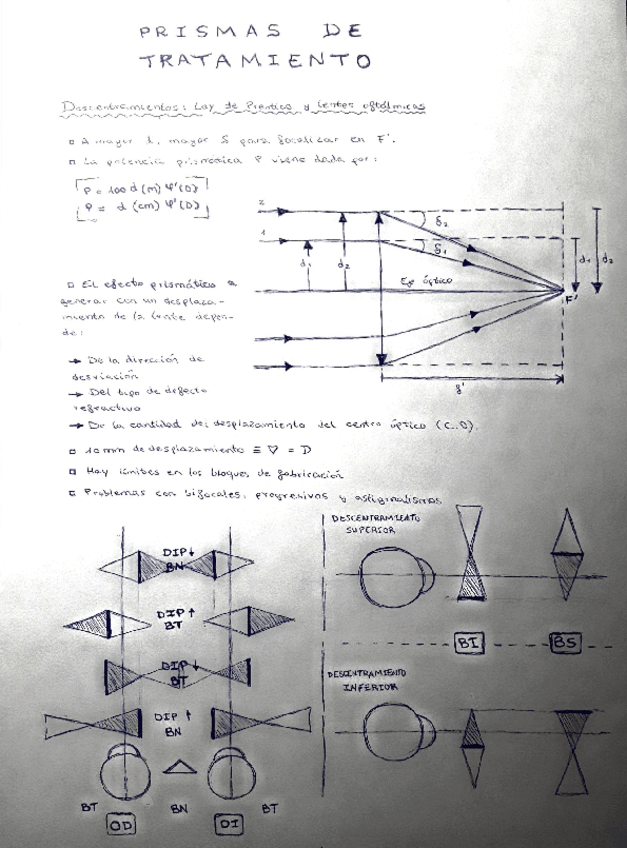 PRISMAS DE
TRATAMIENTO
Descentramientos: Ley de Prentice y lentes oftálmicas
A mayor d, mayor δ para focalizar en F'.
La potencia prismática P viene dada por:
P = 100 d (m) φ'(D)
P = d (cm) φ'(D)
2
δ2
1
δ1
d1
d2
Eje óptico
F'
d1
d2
f'
El efecto prismático a
generar con un desplaza-
miento de la lente depen-
de:
→ De la dirección de
desviación
→ Del tipo de defecto
refractivo
→ De la cantidad de desplazamiento del centro óptico (C.O).
10mm de desplazamiento ≡ ▽ = D
Hay límites en los bloques de fabricación
Problemas con bifocales, progresivos y astigmatismos
DIP↓
BN
DIP↑
BT
DIP↓
BT
DIP↑
BN
BT
BN
BT
OD
OI
DESCENTRAMIENTO
SUPERIOR
BI
BS
DESCENTRAMIENTO
INFERIOR